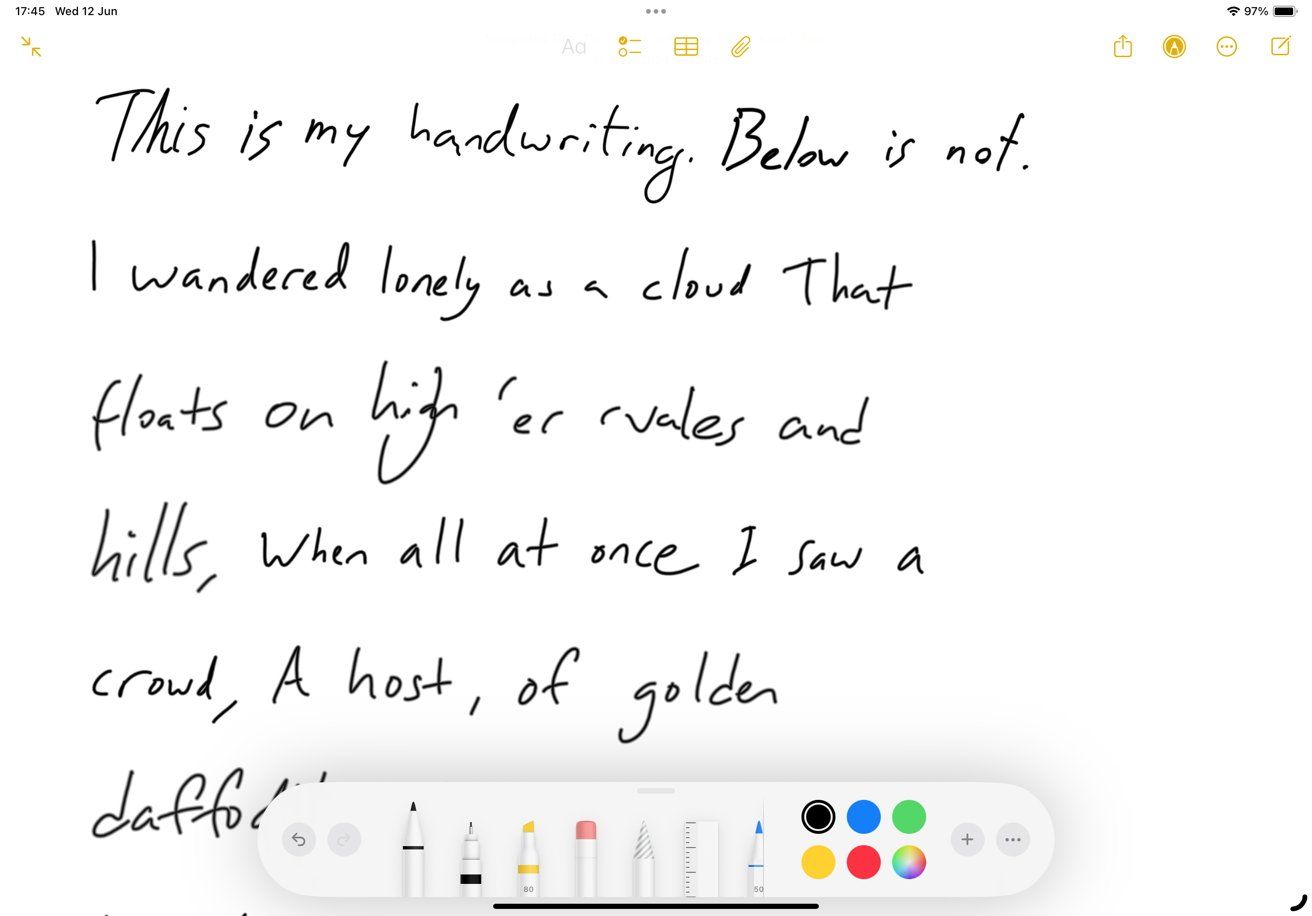 17:45 Wed 12 Jun
97%
Aa
This is my handwriting. Below is not.
I wandered lonely as a cloud That
floats on high 'er vales and
hills, When all at once I saw a
crowd, A host, of golden
80
50